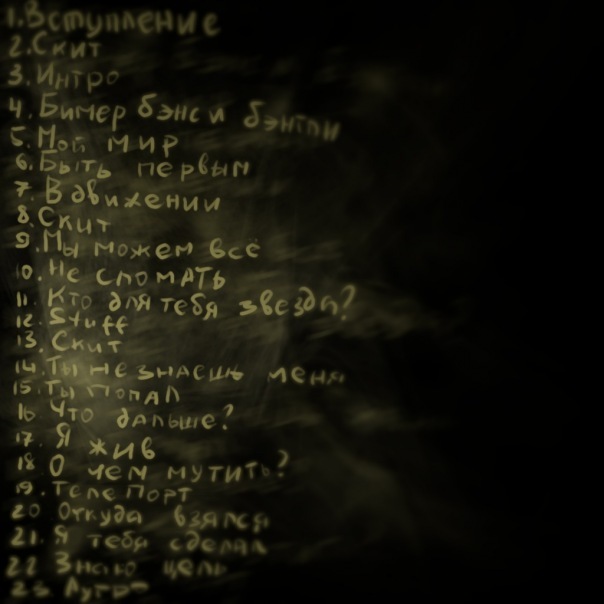 1. Вступление
2. Скит
3. Интро
4. Бимер бэнс и бэнтли
5. Мой мир
6. Быть первым
7. В движении
8. Скит
9. Мы можем всё
10. Не сломать
11. Кто для тебя звезда?
12. Stuff
13. Скит
14. Ты не знаешь меня
15. Ты попал
16 Что дальше?
17. Я жив
18 О чем мутить?
19. Телепорт
20 Откуда взялся
21. Я тебя сделал
22 Знаю цель
23. Аутро